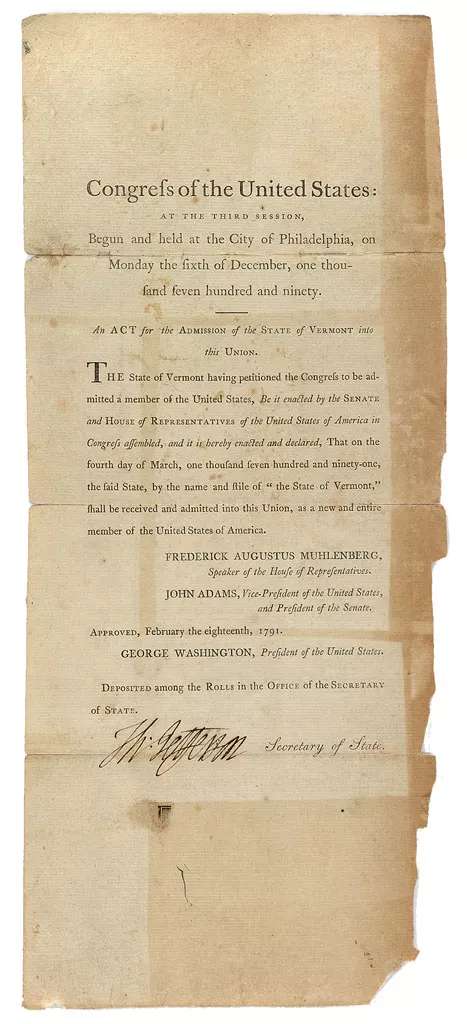 Congreſs of the United States:
AT THE THIRD SESSION,
Begun and held at the City of Philadelphia, on
Monday the ſixth of December, one thou-
ſand ſeven hundred and ninety.
An ACT for the ADMISSION of the STATE of VERMONT into
this UNION.
THE State of Vermont having petitioned the Congreſs to be ad-
mitted a member of the United States, Be it enacted by the SENATE
and HOUSE of REPRESENTATIVES of the United States of America in
Congreſs aſſembled, and it is hereby enacted and declared, That on the
fourth day of March, one thouſand ſeven hundred and ninety-one,
the ſaid State, by the name and ſtile of “ the State of Vermont,”
ſhall be received and admitted into this Union, as a new and entire
member of the United States of America.
FREDERICK AUGUSTUS MUHLENBERG,
Speaker of the Houſe of Repreſentatives.
JOHN ADAMS, Vice-Preſident of the United States,
and Preſident of the Senate.
APPROVED, February the eighteenth, 1791.
GEORGE WASHINGTON, Preſident of the United States.
DEPOSITED among the ROLLS in the OFFICE of the SECRETARY
of STATE.
Th: Jefferson Secretary of State.